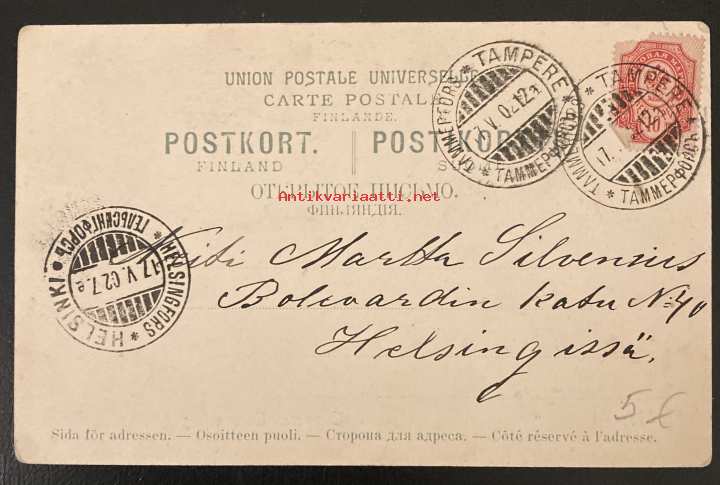 UNION POSTALE UNIVERSELLE
CARTE POSTALE
FINLANDE.
POSTKORT. POSTKORT
FINLAND
ОТКРЫТОЕ ПИСЬМО.
ФИНЛЯНДІЯ.
Antikvariaatti.net
TAMMERFORS * TAMPERE * ТАММЕРФОРСЪ
TAMPERE * ТАММЕРФОРСЪ *
HELSINKI * HELSINGFORS * ГЕЛЬСИНГФОРСЪ
17.V.02.7.e
Neiti Martta Silvenius
Bolevardin katu No 40
Helsingissä.
5 €
Sida för adressen. — Osoitteen puoli. — Сторона для адреса. — Côté réservé à l'adresse.